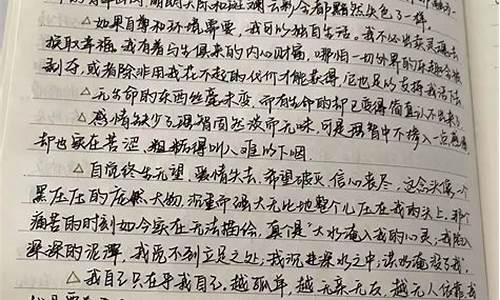 明朗天际和斑斓云彩全都黯然失色了一样。
△如果自尊和环境需要，我可以独自生活。我不必出卖灵魂去
换取幸福。我有着与生俱来的内心财富，哪怕一切外界的乐趣会被
剥夺，或者除非用我花不起的代价才能获得，它也足以支持我活下去
△无生命的东西丝毫未变，而有生命的却已变得简直认不出来了
△感情缺少了理智固然淡而无味，可是理智中不掺入一点感情
却也实在苦涩、粗糙得叫人难以下咽
△自觉终生无望，爱情失去，希望破灭，信心丧尽，这念头像一个
黑压压的庞然大物，沉重而强大无比地整个儿压在我的头上，那个
痛苦的时刻如今实在无法描绘，真个是“大水淹入我的心灵，我陷入
深深的泥潭，我觅不到立足之处；我沉进深水之中；洪水淹没了我”。
△我自己只在乎我自己，越孤单，越无亲无友，越无人依靠我